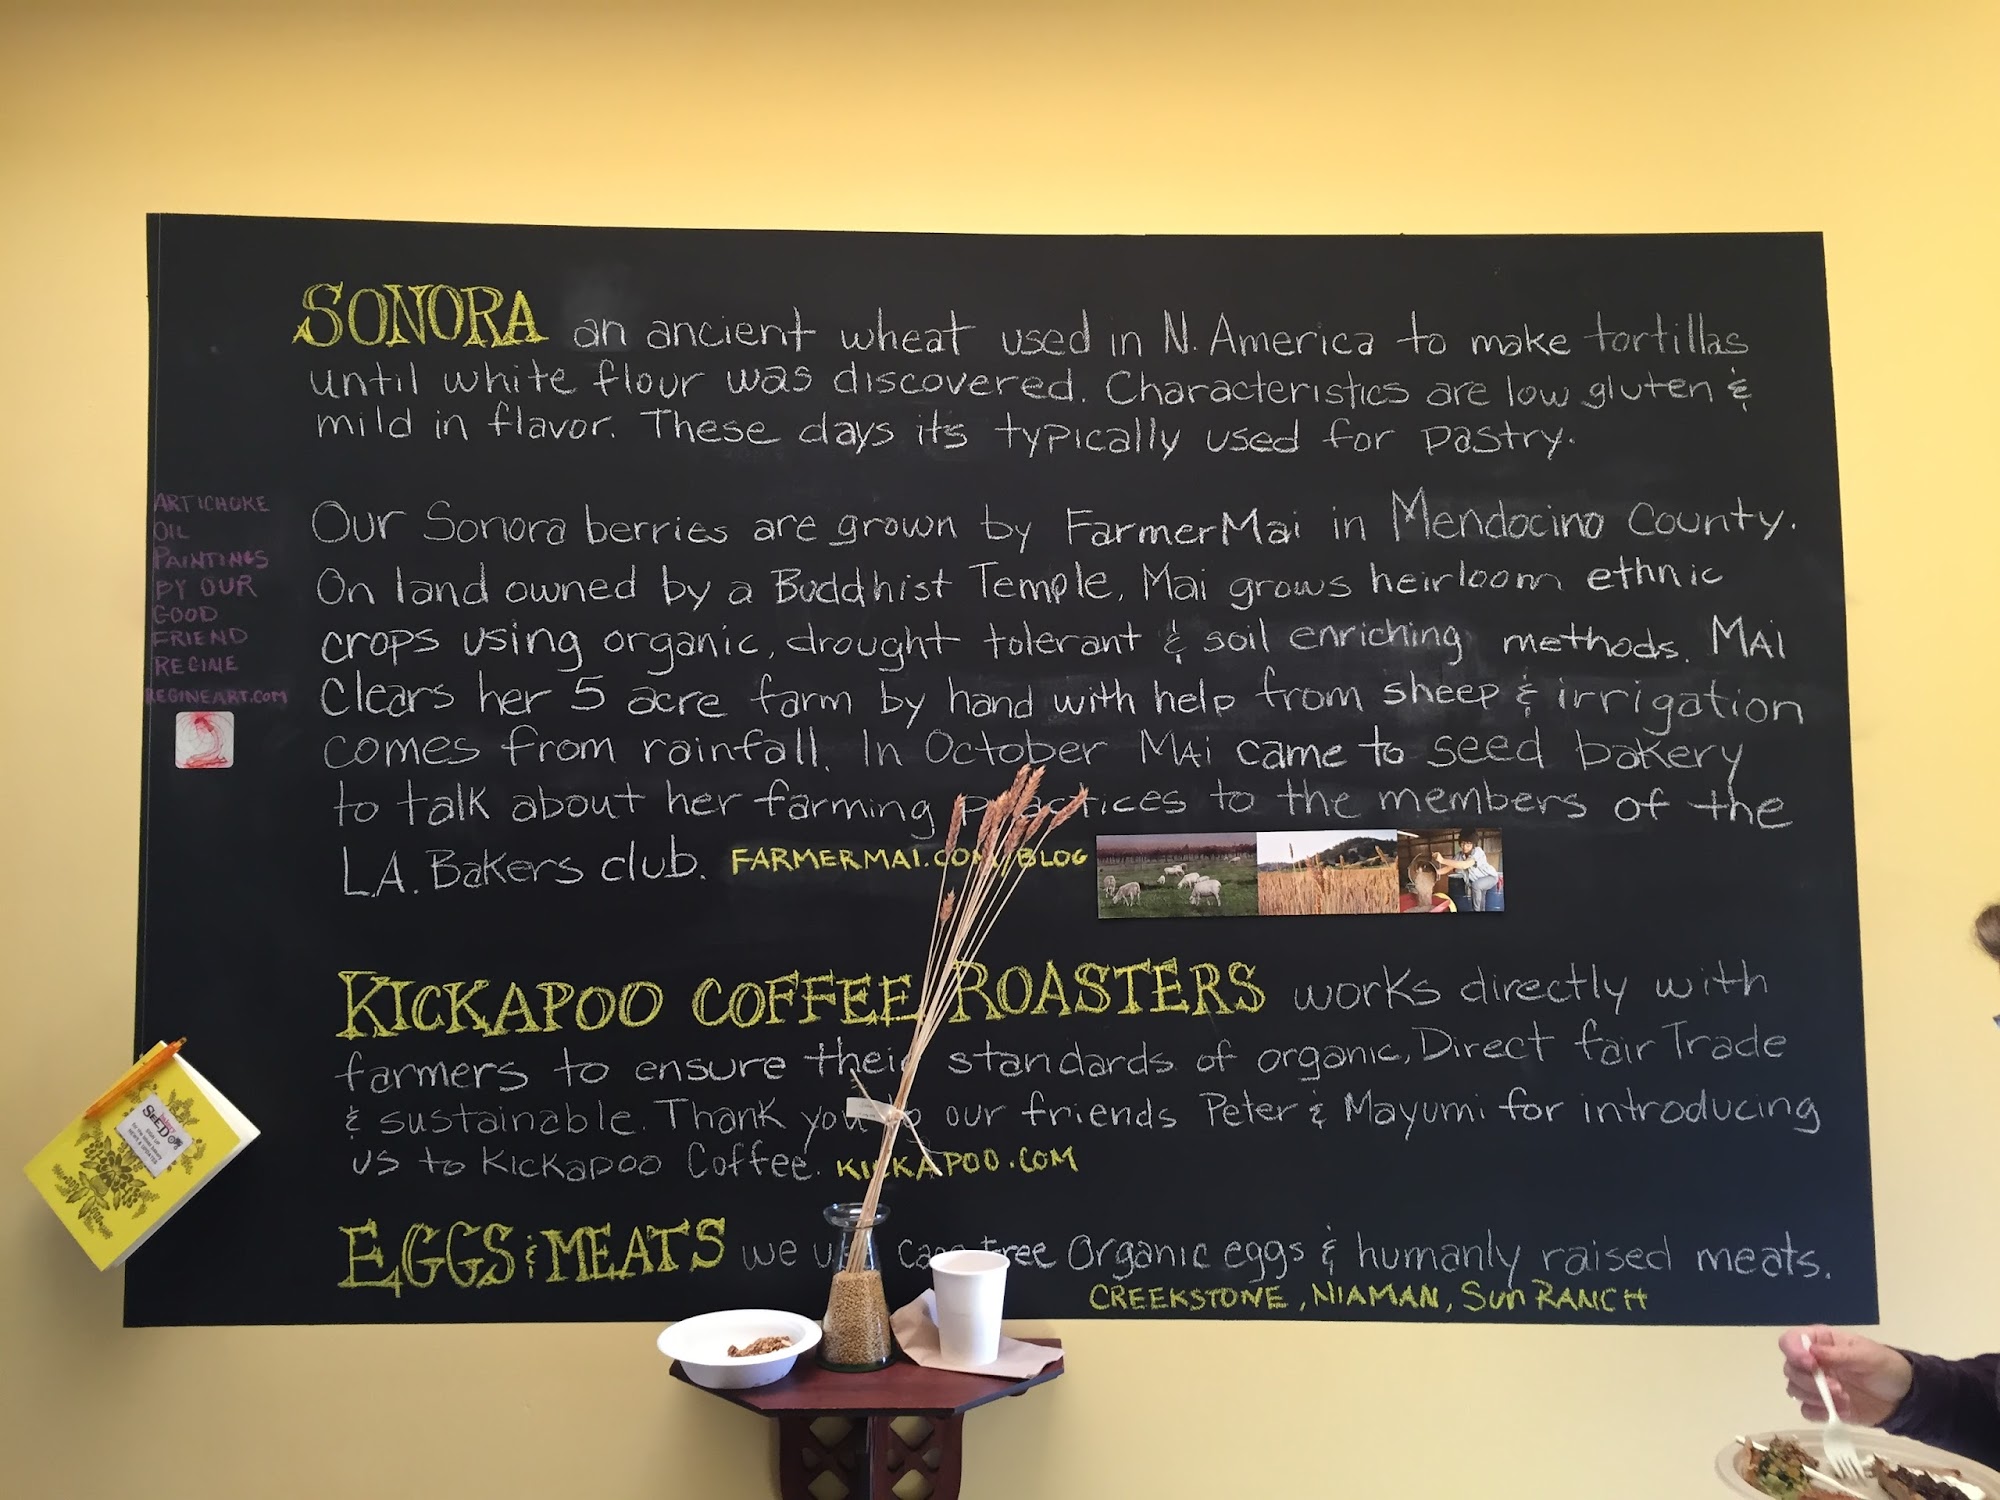 SONORA an ancient wheat used in N. America to make tortillas
until white flour was discovered. Characteristics are low gluten &
mild in flavor. These days its typically used for pastry.
ARTICHOKE
OIL
PAINTINGS
BY OUR
GOOD
FRIEND
REGINE
REGINEART.COM
Our Sonora berries are grown by FarmerMai in Mendocino County.
On land owned by a Buddhist Temple, Mai grows heirloom ethnic
crops using organic, drought tolerant & soil enriching methods. MAi
clears her 5 acre farm by hand with help from sheep & irrigation
comes from rainfall. In October MAi came to seed bakery
to talk about her farming practices to the members of the
L.A. Bakers club. FARMERMAI.COM/BLOG
KICKAPOO COFFEE ROASTERS works directly with
farmers to ensure their standards of organic, Direct fair Trade
& sustainable. Thank you to our friends Peter & Mayumi for introducing
us to Kickapoo Coffee. KICKAPOO.COM
SEED
SIGN UP
for the seed bakery
NEWS & UPDATES
EGGS & MEATS we use cage free Organic eggs & humanly raised meats.
CREEKSTONE, NIAMAN, SUN RANCH